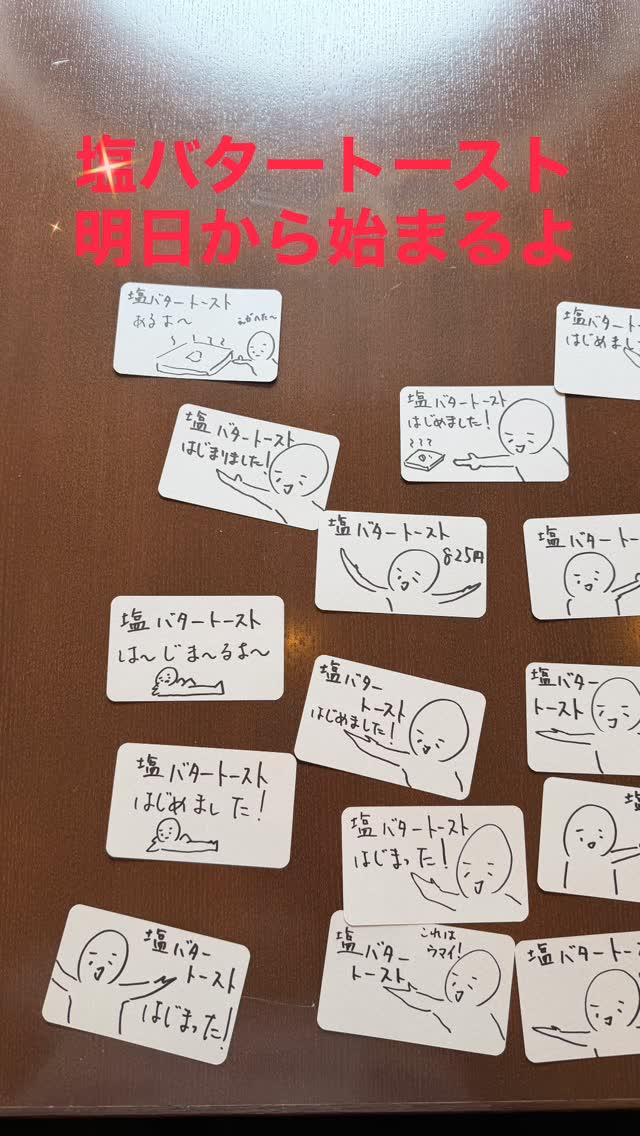 塩バタートースト
明日から始まるよ
塩バタートースト
あるよ〜
塩バタート
はじめまし
塩バタートースト
はじめました!
塩バタートースト
はじまりました!
塩バタートースト
825円
塩バタート
塩バタートースト
は〜じま〜るよ〜
塩バター
トースト
はじめました!
塩バター
トースト
塩バタートースト
はじめました!
塩
塩バタートースト
はじまった!
塩バター
トースト
はじまった!
これは
ウマイ!
塩バター
トースト
塩バタート